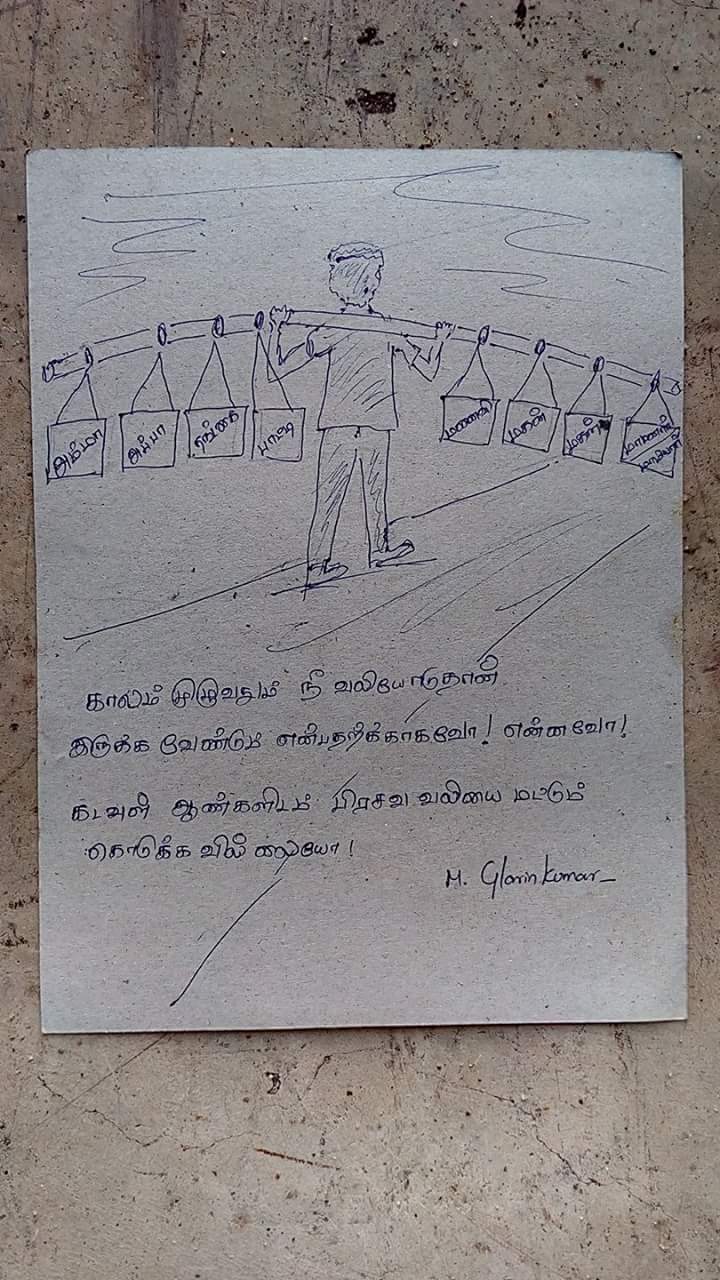 அம்மா
அப்பா
தங்கை
பாட்டி
மனைவி
மகன்
மகள்
மாமனார்
மாமியார்
காலம் முழுவதும் நீ வலியோடுதான்
இருக்க வேண்டும் என்பதற்க்காகவோ! என்னவோ!
கடவுள் ஆண்களிடம் பிரசவ வலியை மட்டும்
கொடுக்க வில்லையோ!
M. Glorin Kumar